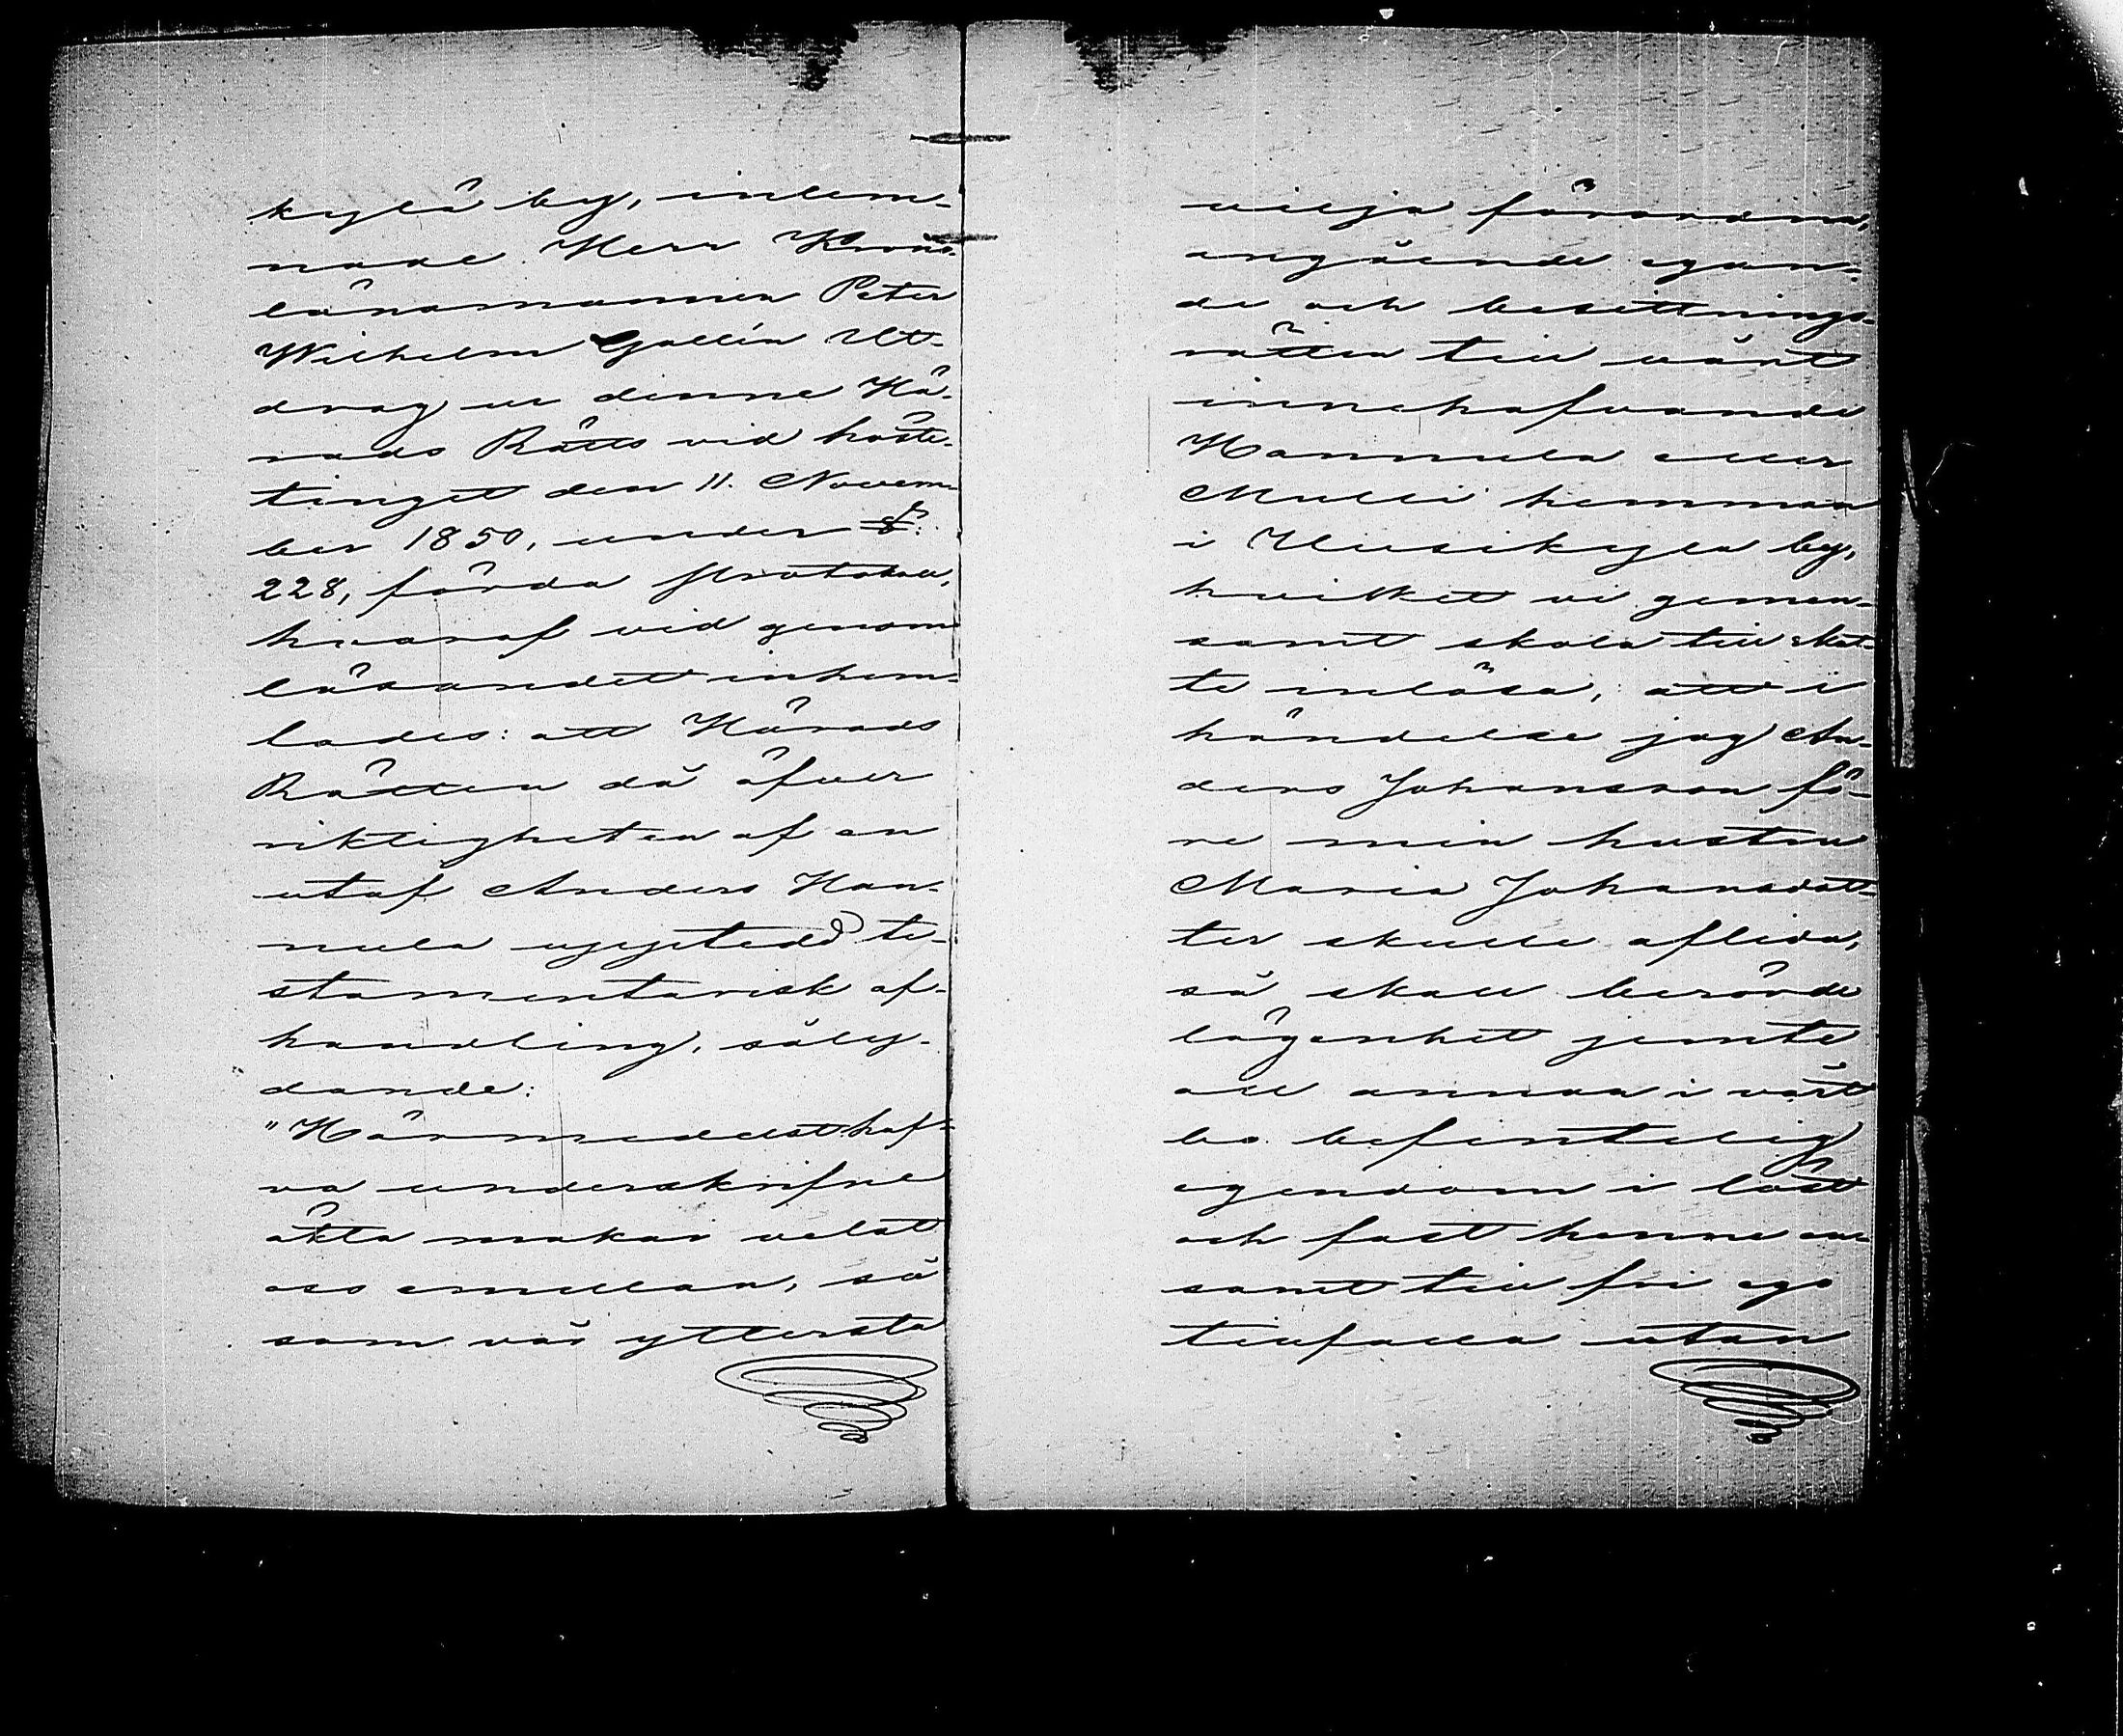 kylä by, inlem-
nade Herr Krono-
länsmannen Peter
Wilhelm Gallén Ut-
drag ur denne Hä-
rads Rätts vid höste-
tinget den 11. Novem-
ber 1850, under §:
228, förda Protokoll,
hvaraf vid genom
läsandet inhem-
lades: att Härads
Rätten då öfver
riktigheten af en
utaf Anders Han-
nula uppstedd te-
stamentarisk af-
handling, såly-
dande:
"Härmedelst haf-
va underskrifne
äkta makar velat
oss emellan, så
som vår yttersta
vilja förordna,
angående egan-
de och besittnings-
rätten till vårt
innehafvande
Hannula eller
Mulli hemman
i Uusikyla by,
hvilket vi gemen-
samt skola till skat-
te inlösa, att i
händelse jag An-
ders Johansson fö-
re min hustru
Maria Johansdott-
ter skulle aflida,
så skall berörde
lägenhet jemte
all annan i vårt
bo befintelig
egendom i löst
och fast henne en-
samt till fri ego
tillfalla utan